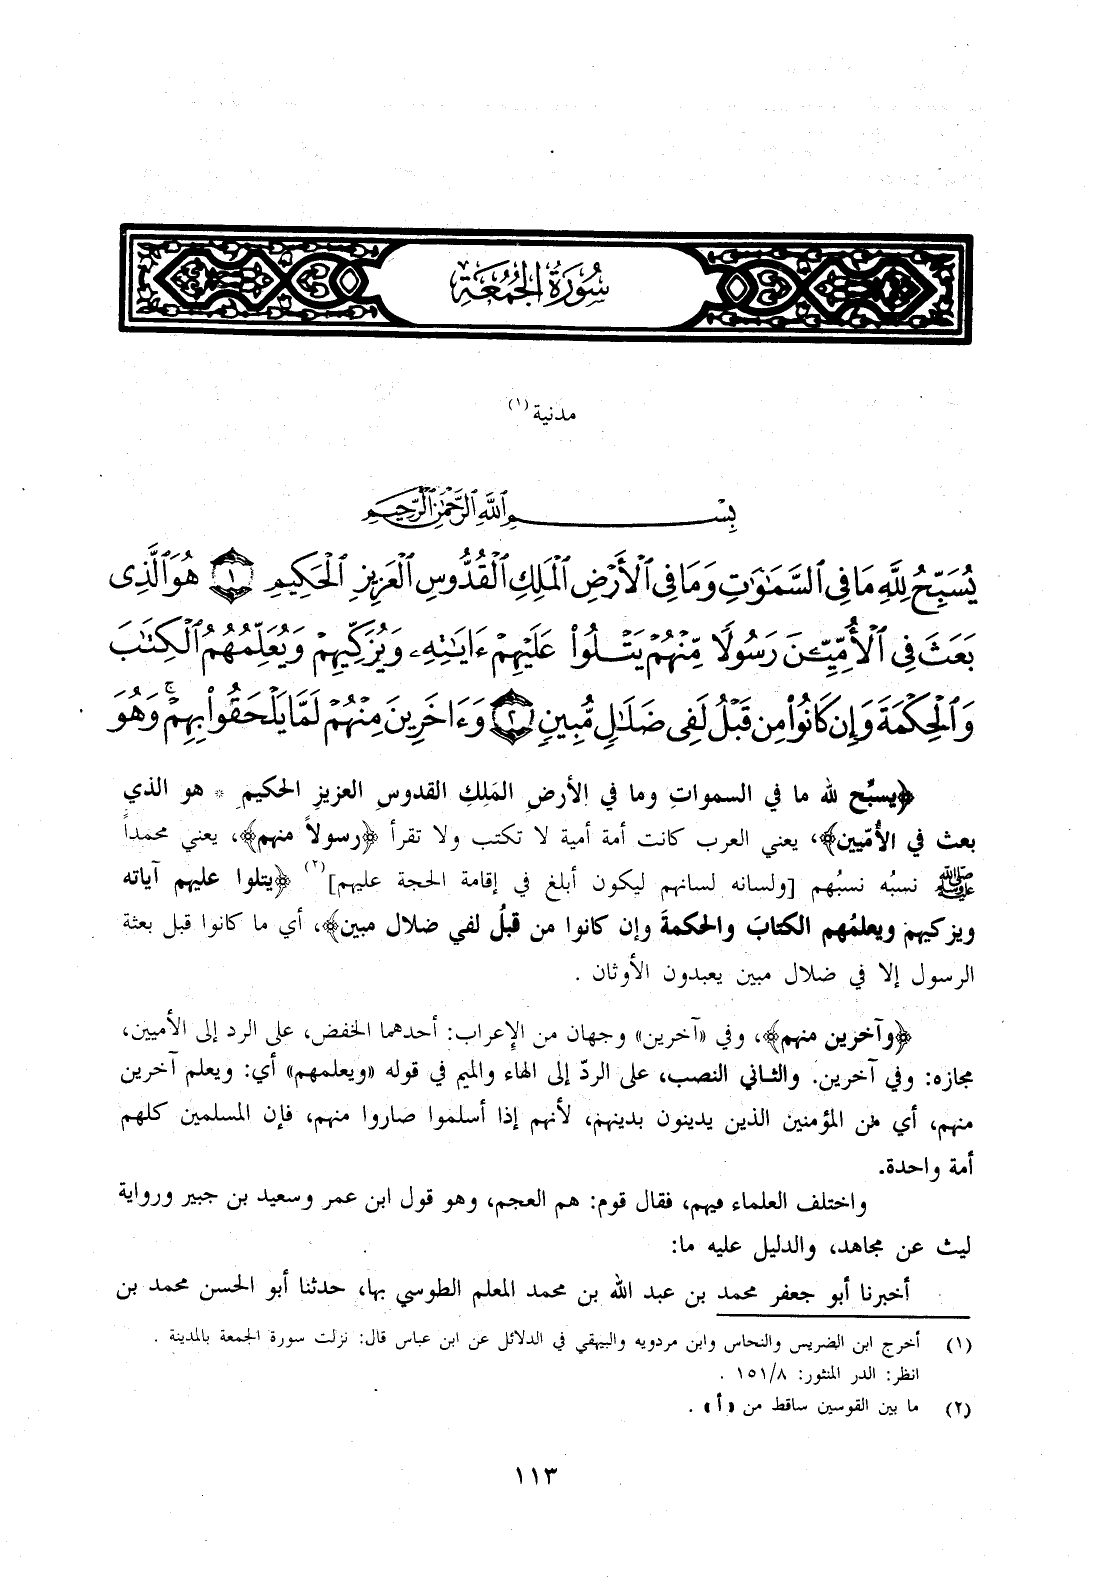 سُورَةُ الجُمُعَةِ
مدنية (١)
بِسْمِ ٱللَّهِ ٱلرَّحْمَٰنِ ٱلرَّحِيمِ
يُسَبِّحُ لِلَّهِ مَا فِى ٱلسَّمَٰوَٰتِ وَمَا فِى ٱلْأَرْضِ ٱلْمَلِكِ ٱلْقُدُّوسِ ٱلْعَزِيزِ ٱلْحَكِيمِ ١ هُوَ ٱلَّذِى
بَعَثَ فِى ٱلْأُمِّيِّـۧنَ رَسُولًا مِّنْهُمْ يَتْلُوا۟ عَلَيْهِمْ ءَايَٰتِهِۦ وَيُزَكِّيهِمْ وَيُعَلِّمُهُمُ ٱلْكِتَٰبَ
وَٱلْحِكْمَةَ وَإِن كَانُوا۟ مِن قَبْلُ لَفِى ضَلَٰلٍ مُّبِينٍ ٢ وَءَاخَرِينَ مِنْهُمْ لَمَّا يَلْحَقُوا۟ بِهِمْ ۚ وَهُوَ
﴿يسبِّح لله ما في السموات وما في الأرض المَلِكِ القدوس العزيز الحكيم * هو الذي
بعث في الأُمّيين﴾، يعني العرب كانت أمة أمية لا تكتب ولا تقرأ ﴿رسولاً منهم﴾، يعني محمداً
ﷺ نسبُه نسبُهم [ولسانه لسانهم ليكون أبلغ في إقامة الحجة عليهم](٢) ﴿يتلوا عليهم آياته
ويزكيهم ويعلمُهم الكتابَ والحكمةَ وإن كانوا من قبلُ لفي ضلال مبين﴾، أي ما كانوا قبل بعثة
الرسول إلا في ضلال مبين يعبدون الأوثان .
﴿وآخرين منهم﴾، وفي «آخرين» وجهان من الإعراب: أحدهما الخفض، على الرد إلى الأميين،
مجازه: وفي آخرين. والثاني النصب، على الردّ إلى الهاء والميم في قوله «ويعلمهم» أي: ويعلم آخرين
منهم، أي من المؤمنين الذين يدينون بدينهم، لأنهم إذا أسلموا صاروا منهم، فإن المسلمين كلهم
أمة واحدة.
واختلف العلماء فيهم، فقال قوم: هم العجم، وهو قول ابن عمر وسعيد بن جبير ورواية
ليث عن مجاهد، والدليل عليه ما:
أخبرنا أبو جعفر محمد بن عبد الله بن محمد المعلم الطوسي بها، حدثنا أبو الحسن محمد بن
(١) أخرج ابن الضريس والنحاس وابن مردويه والبيهقي في الدلائل عن ابن عباس قال: نزلت سورة الجمعة بالمدينة .
انظر: الدر المنثور: ١٥١/٨ .
(٢) ما بين القوسين ساقط من «أ» .
١١٣